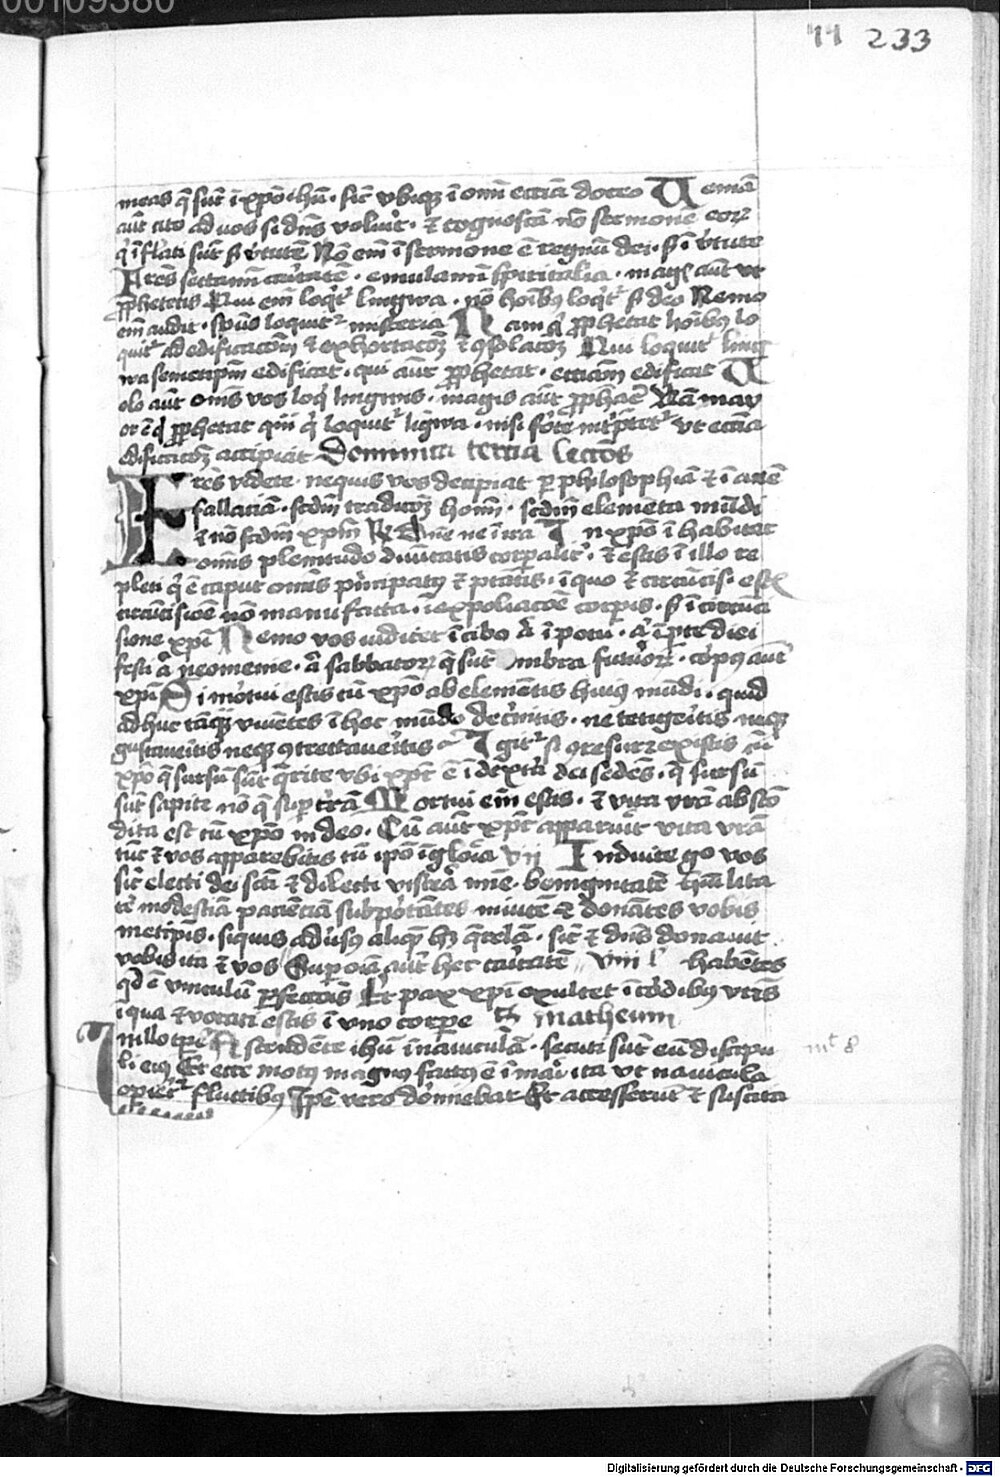 00109380
233
meas q̄ sūt ī xp̄o ihū · sic̄ vbiqꝫ ī om̄i ecc̄ia doceo Ueniā
aūt cito ad vos si dn̄s volu͛it · ⁊ cognoscā nō sermonē eoꝝ
q̇ īflati sūt sꝫ v͛tutē Nō em̄ ī sermone ē regnū dei · sꝫ ī v͛tute
Fr̄es sectamī caritatē · emulamī spiritalia · magꝭ aūt vt
ꝓphetetis Qui em̄ loqͥt᷑ lingwa · nō hoīibꝰ loqͥt᷑ sꝫ deo Nemo
em̄ audit · spūs loquit᷑ misteria Nam qͥ ꝓphetat hoīibꝰ lo
quit᷑ ad edificacōm ⁊ exhortacōꝫ ⁊ ꝯsolacōꝫ Qui loquit᷑ ling
wa semetip̄m edificat · qui aūt ꝓphetat · ecc̄iam edificat U
olo aūt om̄s vos loqͥ lingwis · magis aūt ꝓphāe Nā may
or ē qͥ ꝓphetat quā qͥ loquit᷑ līgwa · nisi forte int͛p̄tet᷑ vt ecc̄ia
edificacōꝫ accipiat Dominica tercia Lectōs
Fr̄es videte · nequis vos decipiat ꝑ philosophiā ⁊ īanē
fallaciā · scdm̄ tradicōꝫ hoīm · scdm̄ elemēta mūdi
⁊ nō scdm̄ xpm̄ In xp̄o īhabitat
omīs plenitudo diuītatis corpalit᷑ · ⁊ estis ī illo re
pleti qͥ ē caput om̄is pͥncipatꝰ ⁊ ptātis · ī quo ⁊ circūcis · estꝭ
circūcisiōe nō manu facta · ī expoliacōe corpis · sꝫ ī circūci
sione xpī Nemo vos iudicet ī cibo aͭ ī potu · aͭ ī pte diei
festi aͭ neomenie · aͭ sabbatoꝝ q̄ sūt vmbra futuroꝝ · corpꝰ aūt
xpī Si mortui estis cū xp̄o ab elemētis huiꝰ mūdi · quid
adhuc tāqꝫ viuētes ī hoc mūdo dec͛nitis · ne tetigeritis neqꝫ
gustaueitis neqꝫ ꝯtrectaueritis Igit᷑ si ꝯresurrexistis cū
xp̄o q̄ sursū sūt q̄rite vbi xp̄c ē ī dext͛a dei sedēs · q̄ sursū
sūt sapite nō q̄ suꝑ t͛rā Mortui em̄ estis · ⁊ vita vr̄a abscō
dita est cū xp̄o in deo · Cū aūt xp̄c apparu͛it vita vr̄a
tūc ⁊ vos apparebitis cū ip̄o ī gloīa vij Induite go vos
sic̄ electi dei sc̄i ⁊ dilecti viscera mīe · benignitatē hūilita
tē modestiā pacīeciā subportātes īuicē ⁊ donātes vobis
metip̄is · siquis adu͛sꝰ aliqm̄ hꝫ q̄relā · sic̄ ⁊ dn̄s donauit
vobis ita ⁊ vos Suꝑ oīa aūt hec caritatē viij lͦ habētes
qd̄ ē vinculū ꝑfectōis Et pax xpī exultet ī cordibꝰ vr̄is
ī qua ⁊ vocati estis ī vno corpe S matheum
In illo tꝑe Ascendēte ihū ī nauiculā · secuti sūt eū discipu
li eiꝰ Et ecce motꝰ magnꝰ factꝰ ē ī mari ita vt nauicula
opiet᷑ fluctibꝰ Ip̄e vero dormiebat Et accesserūt ⁊ suscita
mͭ 8
Digitalisierung gefördert durch die Deutsche Forschungsgemeinschaft - DFG